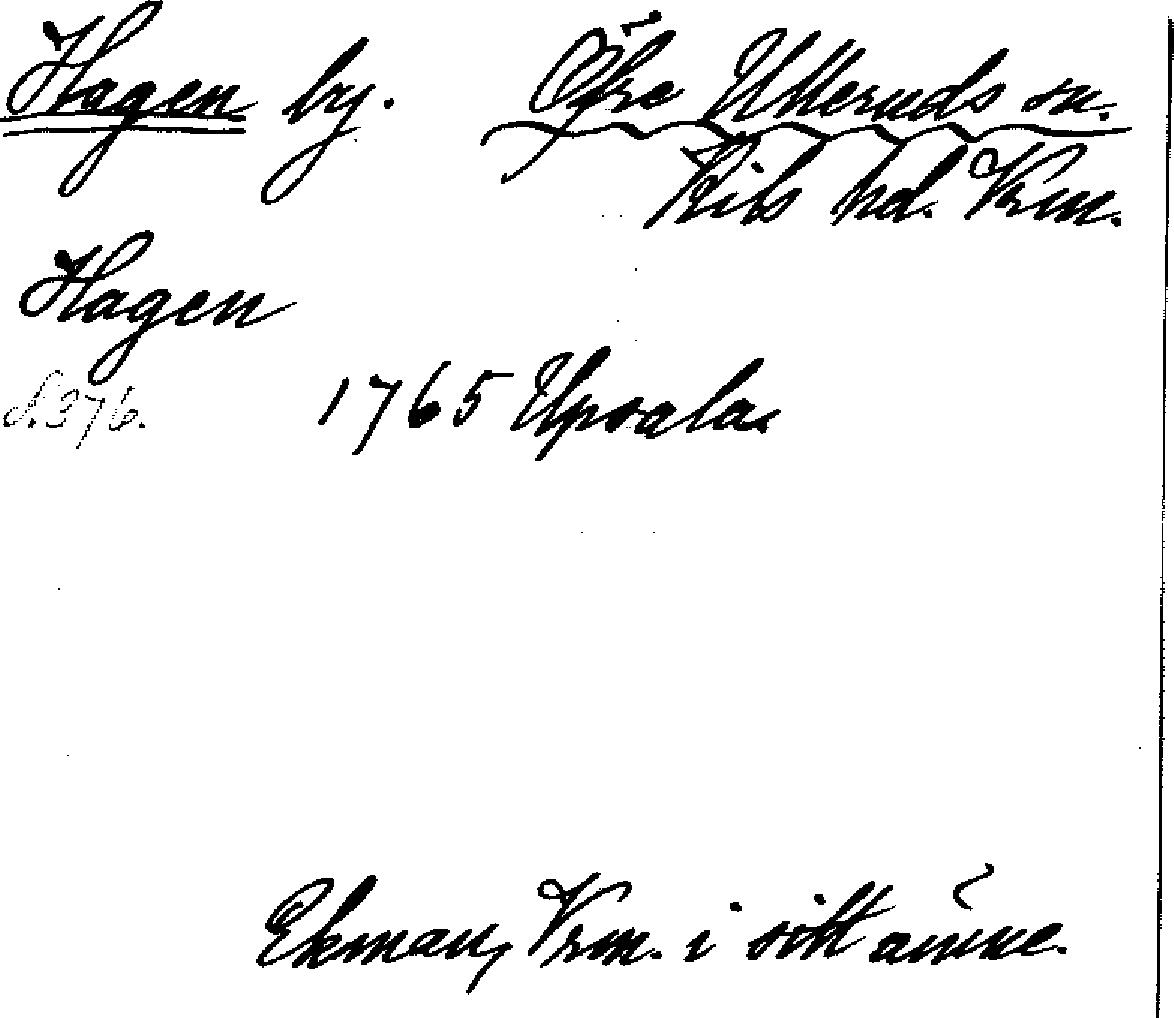 Hagen by. Öfre Ulleruds sn.
Kils hd. Vrm.
Hagen
S. 376. 1765 Upsala.
Ekman, Vrm. i sitt ämne.